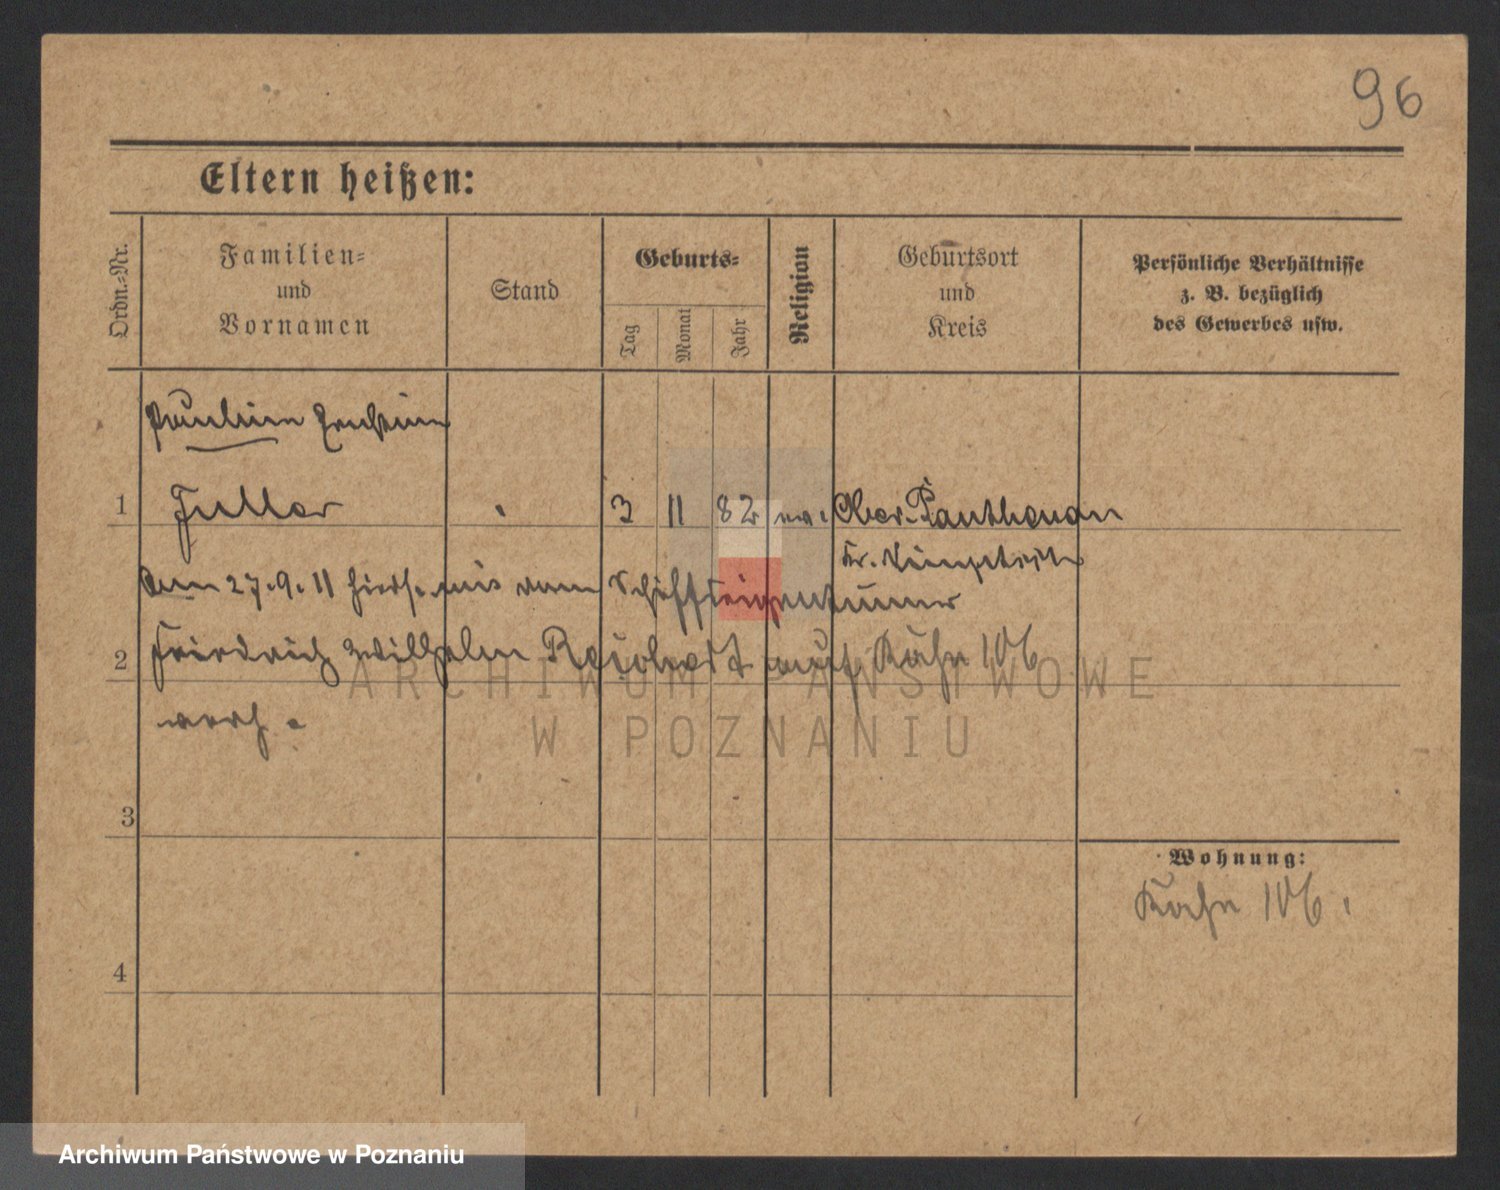 96
Eltern heißen:
Ordn.-Nr.
Familien-
und
Vornamen
Stand
Geburts-
Tag
Monat
Jahr
Religion
Geburtsort
und
Kreis
Persönliche Verhältnisse
z. B. bezüglich
des Gewerbes usw.
Pauline
1 3 11 82 ev. Ober-Panthenau
Kr.
Am 27.9.11 hiers. mit dem Schiffseigentümer
2 Friedrich Wilhelm Reichert auf Kahn 106
verh.
3
4
Wohnung:
Kahn 106.
ARCHIWUM PAŃSTWOWE
W POZNANIU
Archiwum Państwowe w Poznaniu